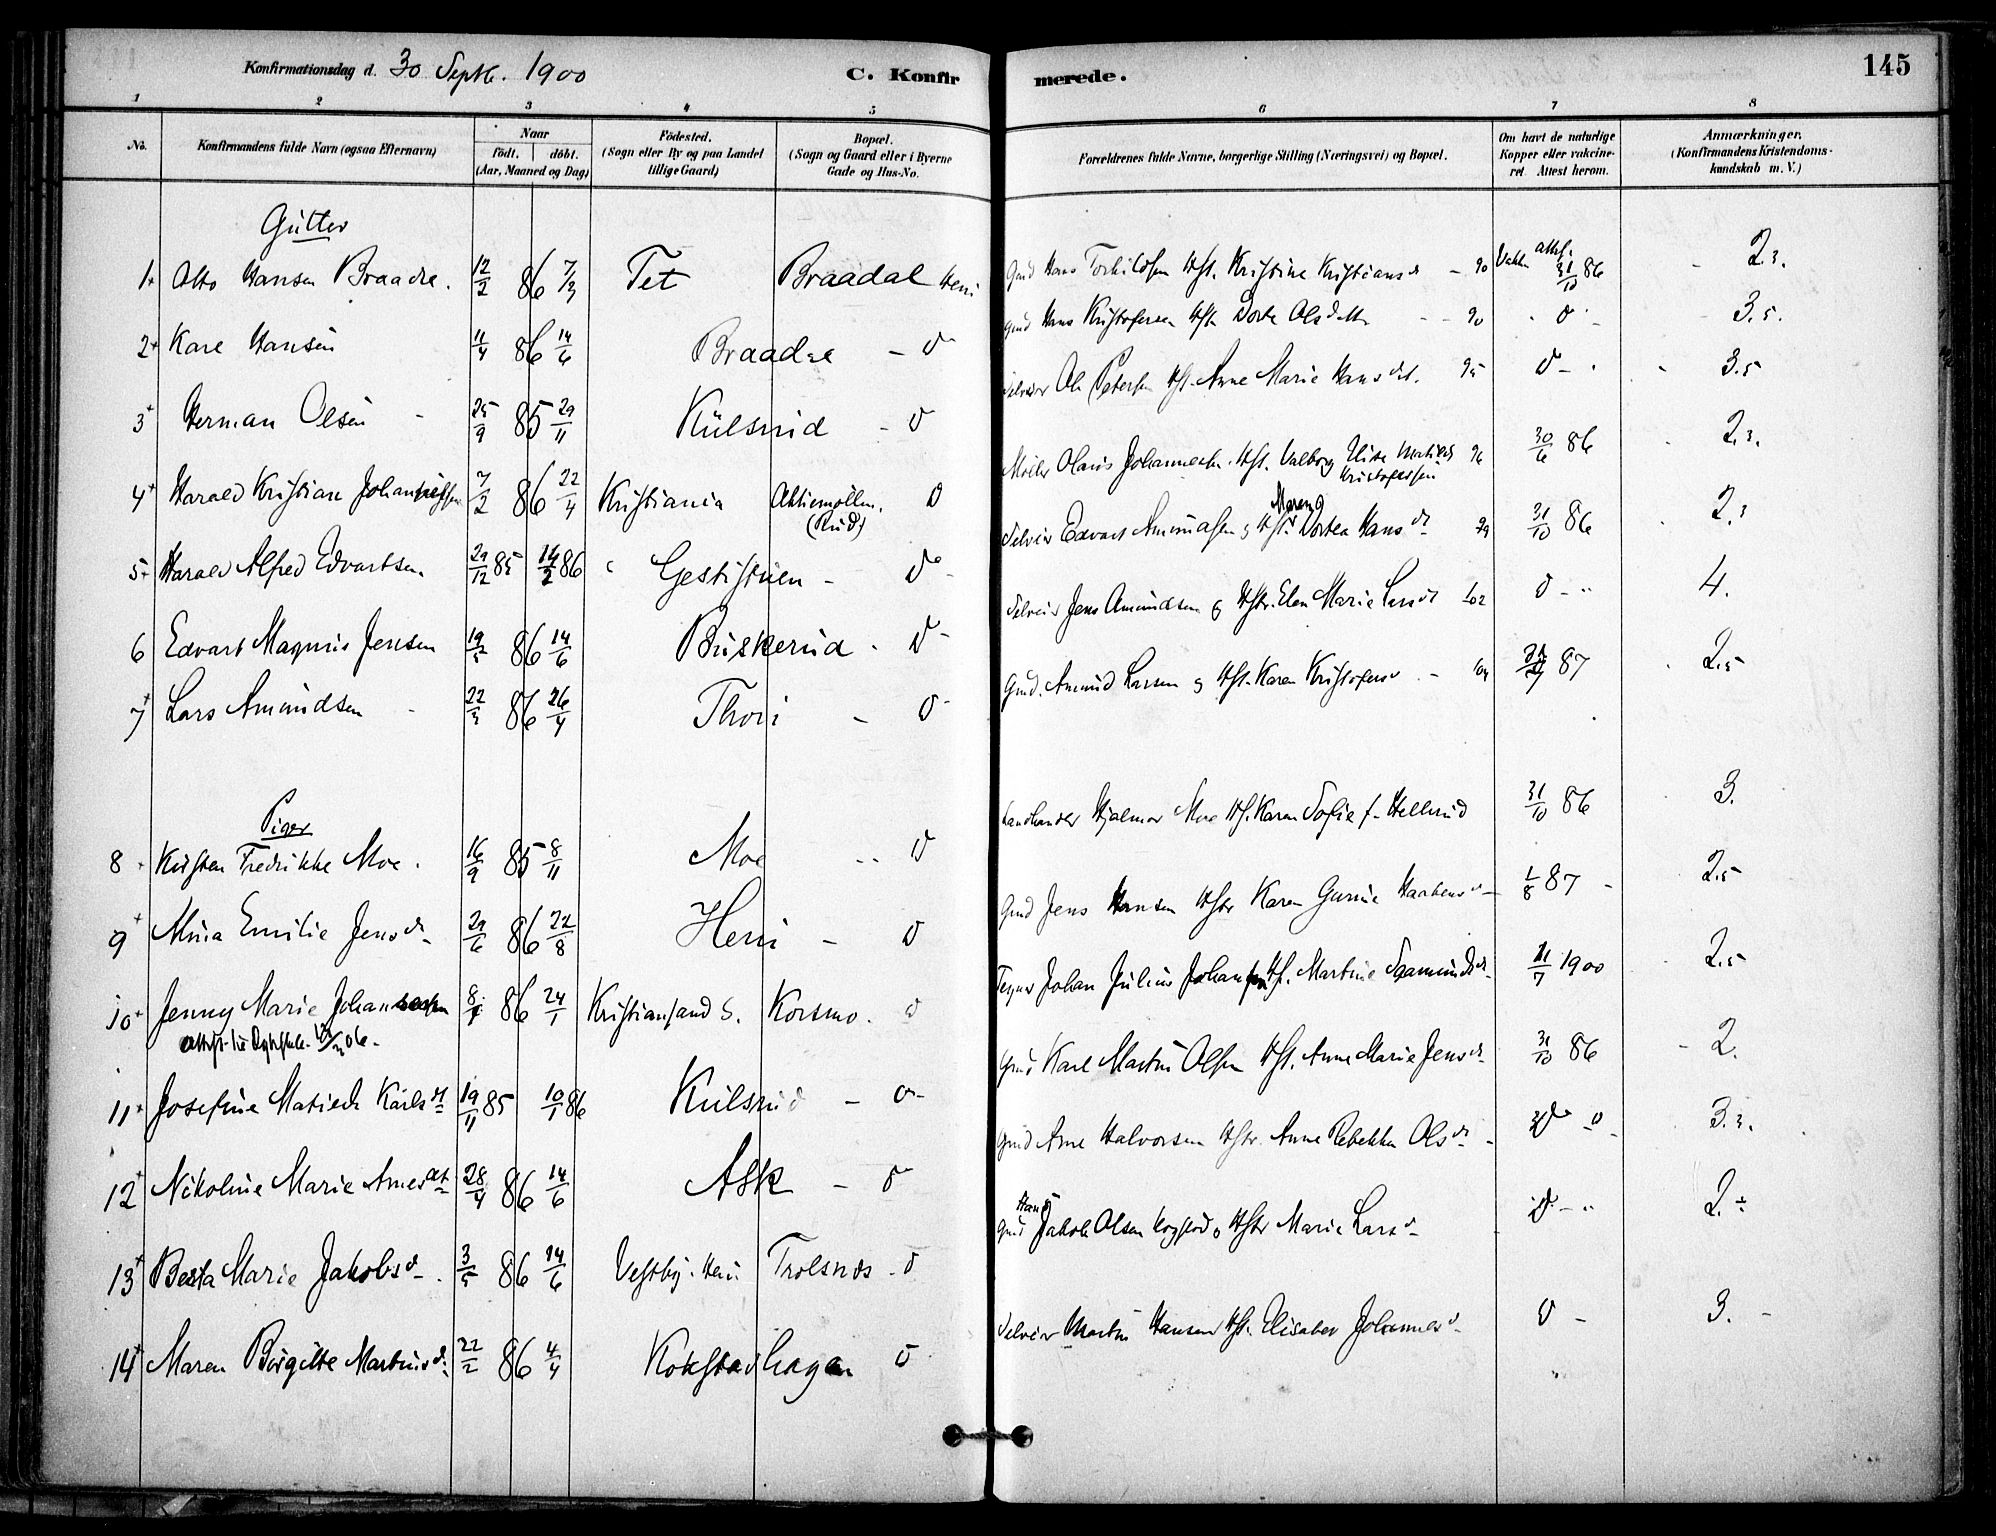 Konfirmationsdag d. 30 Septb. 1900
C. Konfirmerede.
145
1 2 3 4 5 6 7 8
No. Konfirmandens fulde Navn (ogsaa Efternavn) Naar födt. döbt. (Aar, Maaned og Dag) Födested. (Sogn eller By og paa Landet tillige Gaard) Bopæl. (Sogn og Gaard eller i Byerne Gade og Hus-No. Forældrenes fulde Navne, borgerlige Stilling (Næringsvei) og Bopæl. Om havt de naturlige Kopper eller vakcineret. Attest herom. Anmærkninger. (Konfirmandens Kristendomskundskab m. V.)
Gutter
1 Otto Hansen Braadre. 12/2 86 7/3 Tet Braadal Heni Gmd Hans Torkildsen Hst. Kristine Kristiansd - 90 Vakc. attest. 31/10 86 2.3.
2 Kare Hansen 11/4 86 14/6 Braadre - D Gmd Hans Kristofersen Hst. Dorte Olsdttr - 90 D 3.5.
3 Herman Olsen 25/9 85 29/11 Kulsrud - D Selveier Ole Petersen Hst. Anne Marie Hansdt. 95 D - 3.5
4 Harald Kristian Johannessen 7/2 86 22/4 Kristiania Aktiemøllen. (Rud) D Møller Olaus Johannesen. Hst. Valborg Elise Matilde Kristofersen 96 30/6 86 2.3.
5 Harald Alfred Edvartsen. 29/12 85 14/2 86 Gestistuen - D Selveier Edvart Amundsen og Hst. Maren Dortea Hansdt 99 31/10 86 2.3
6 Edvart Magnus Jensen 19/5 86 14/6 Buskerud - D Selveier Jens Amundsen og Hstr. Elen Marie Larsdt 102 D - 4.
7 Lars Amundsen 22/3 86 26/4 Thori - D Gmd. Amund Larsen og Hst. Karen Kristofersd - 104 87 2.5
Piger
8 Kirsten Fredrikke Moe. 16/9 85 8/11 Moe D Landhandler Hjalmar Moe H. Karen Sofie f. Hellerud 31/10 86 3.
9 Mina Emilie Jensdt 29/6 86 22/8 Heni - D Gmd Jens Hansen Hstr Karen Gurine 1/8 87 - 2.5
10 Jenny Marie Johansen 8/1 86 24/1 Kristiansand S. Korsmo. D Johan Julius Johansen Hst. Martine 11/7 1900 2.5
11 Josefine Matilde Karlsdt 19/11 85 10/1 86 Kulsrud - D Gmd Karl Martin Olsen Hst. Anne Marie Jensdt 31/10 86 - 2.
12 Nikoline Marie Arnesdt 28/4 86 14/6 Ask - D Gmd Arne Halvorsen Hstr. Anne Rebekka Olsdt - D 3.3.
13 Berta Marie Jakobsd 3/5 86 14/6 Vestby. Heni Trolsnes - D Gmd Hans Jakob Olsen og Hstr Marie Larsd D - 2.÷
14 Maren Birgitte Martinsd. 22/2 86 4/4 Kokstadhagen D Selveier Martin Hansen Hst. Elisabet Johannesd D - 3. -